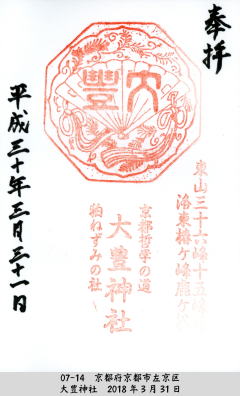 奉拝
東山三十六峰十五峰
洛東椿ケ峰鹿ケ谷
大豊
京都哲学の道
大豊神社
狛ねずみの社
平成三十年三月三十一日
07-14 京都府京都市左京区
大豊神社 2018年3月31日